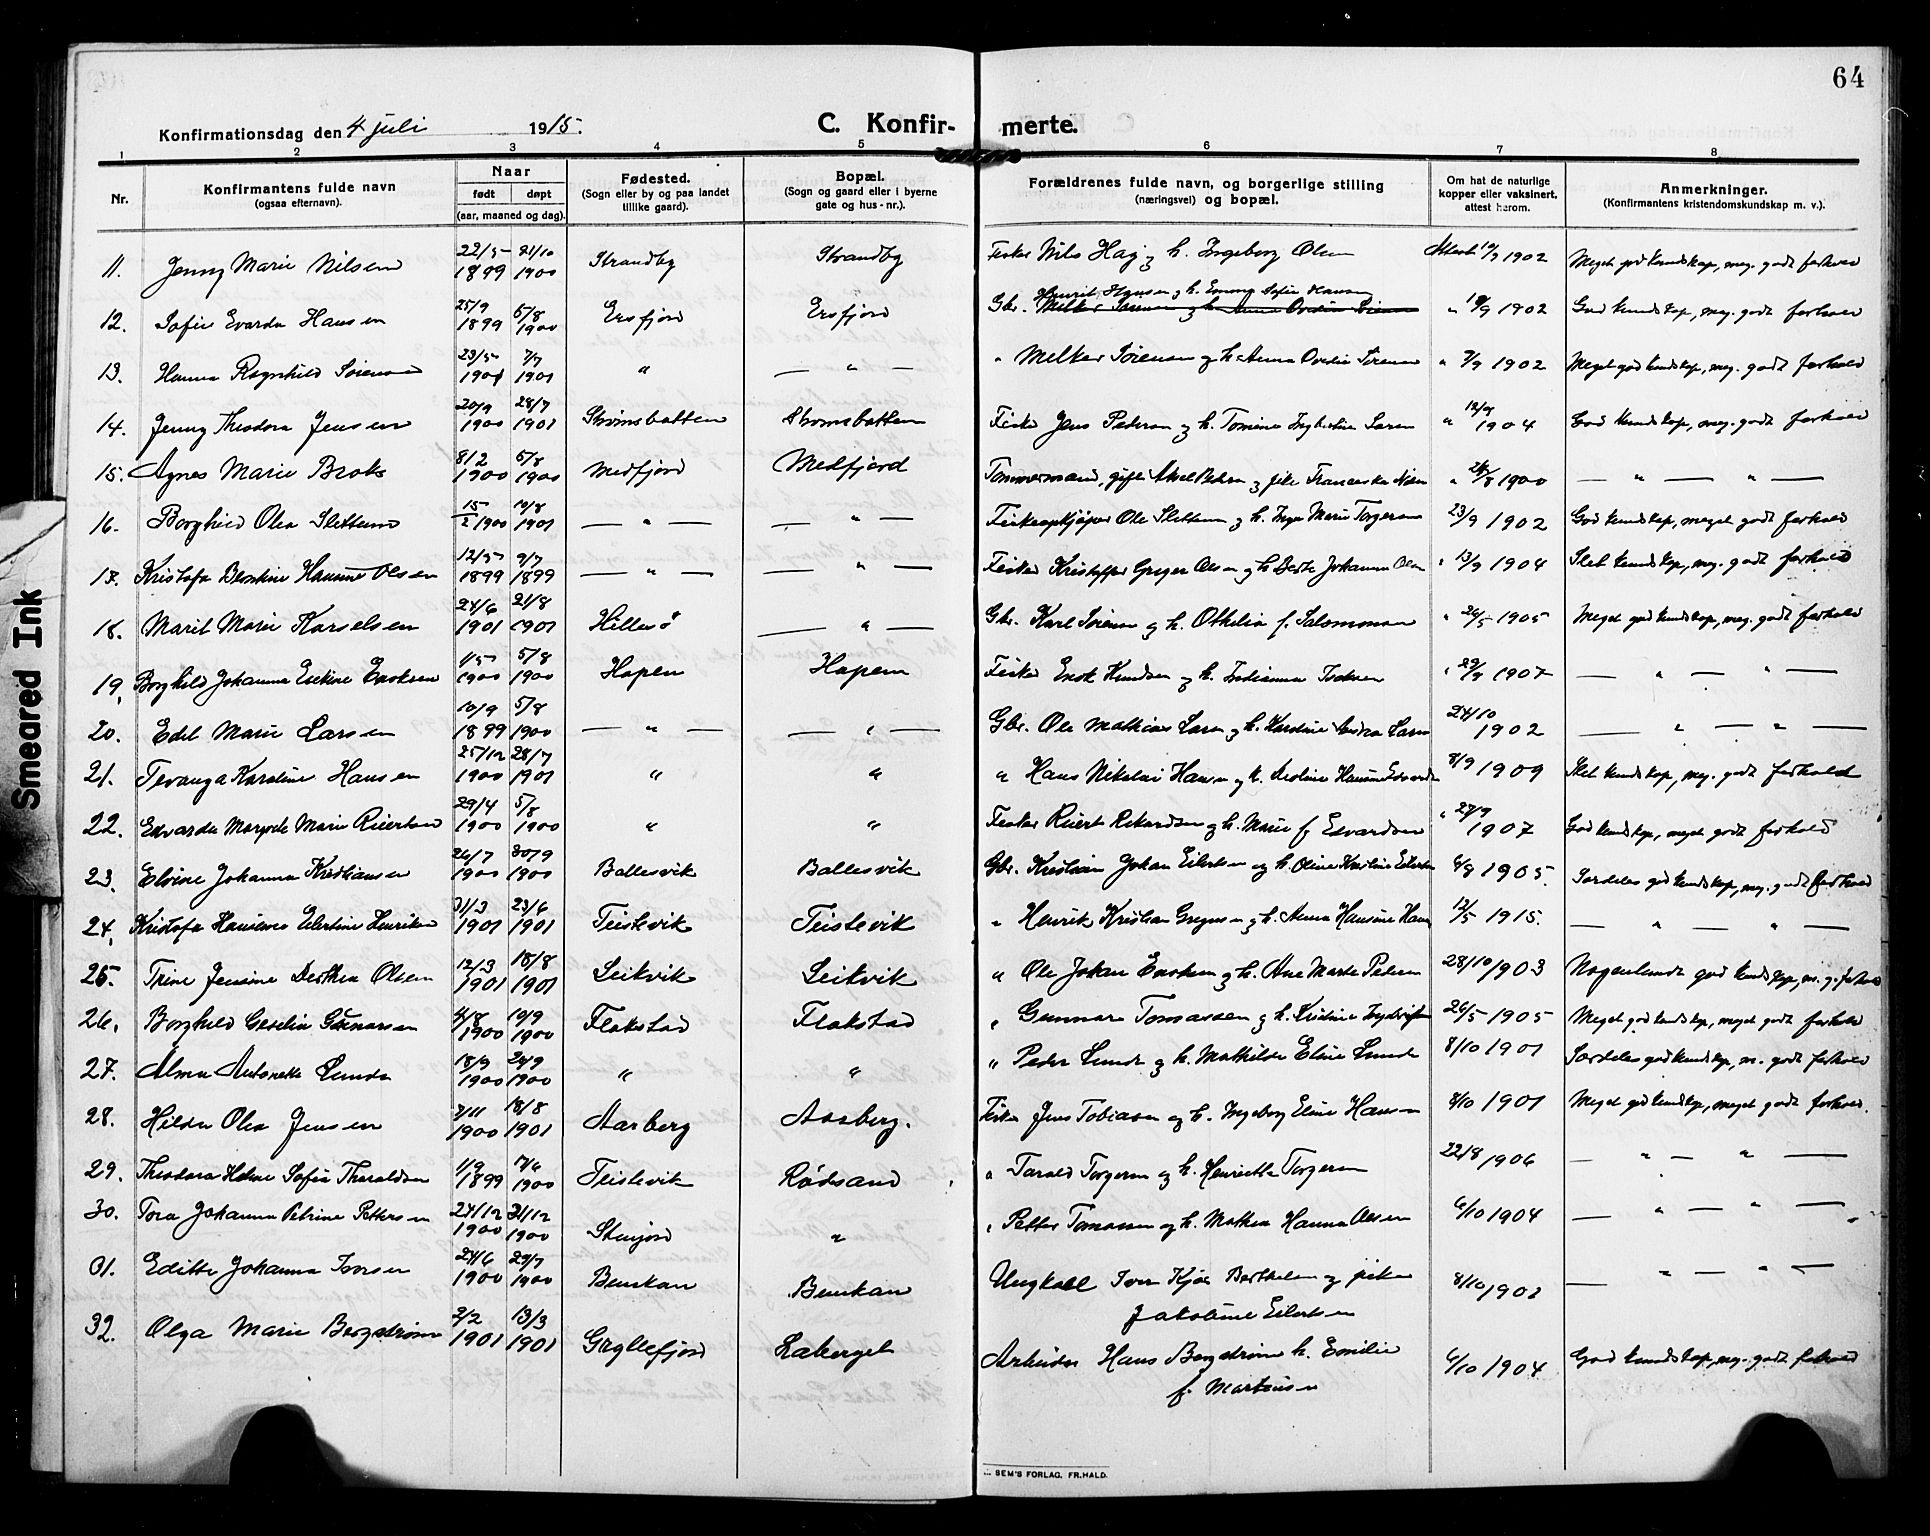 64
Konfirmationsdag den 4 juli 1915.
C. Konfir- merte.
1 2 3 4 5 6 7 8
Nr.
Konfirmantens fulde navn
(ogsaa efternavn).
Naar
født døpt
(aar, maaned og dag).
Fødested.
(Sogn eller by og paa landet
tillike gaard).
Bopæl.
(Sogn og gaard eller i byerne
gate og hus-nr.).
Forældrenes fulde navn, og borgerlige stilling
(næringsvei) og bopæl.
Om hat de naturlige
kopper eller vaksinert,
attest herom.
Anmerkninger.
(Konfirmantens kristendomskundskap m. v.).
11. Jenny Marie Nilsen 22/5 1899 21/10 1900 Strandby Strandby Fisker Nils Hag og h. Ingeborg Olsen Attest 19/9 1902 Meget god kundskap, meg. godt forhold
12. Sofie Evarda Hansen 25/9 1899 5/8 1900 Ersfjord Ersfjord Gbr. Henrik Hansen og h. Emma Sofie Hansen " 19/9 1902 God kundskap, meg. godt forhold
13. Hanna Ragnhild Sørensen 23/5 1901 7/7 1901 " — " — " Melker Sørensen og h. Anna Ovedia Sørensen " 7/9 1902 Meget god kundskap, meg. godt forhold
14. Jenny Theodora Jensen 20/9 1900 28/7 1901 Strømsbotten Strømsbotten Fisker Jens Pedersen og h. " 12/9 1904 God kundskap, meg. godt forhold
15. Agnes Marie Broks 8/2 1900 5/8 1900 Medfjord Medfjord Tømmermand, gift, Aksel og pike " 1900 — " — " —
16. Borghild Olea Slettum 15/2 1900 10/8 1901 — " — — " — Fiskeopkjøper Ole Slettum og h. Inga Marie Torgersen " 23/9 1902 God kundskap, meget godt forhold
17. Kristofa Hansine Olsen 12/5 1899 9/7 1899 — " — — " — Fisker Kristoffer Greger Olsen og h. Berte Johanna Olsen " 13/9 1904 Slet kundskap, meg. godt forhold
18. Marit Marie Karselsen 24/6 1901 21/8 1901 Hillesø — " — Gbr. Karl Sørensen og h. Othelia f. Salomonsen " 26/5 1905 Meget god kundskap, meg. godt forhold
19. Borghild Johanna Enoksen 1/5 1900 5/8 1900 Hopen Hopen Fisker Enok Knudsen og h. " 1907 — " — " —
20. Edel Marie Larsen 10/9 1899 5/8 1900 — " — — " — Gbr. Ole Mathias Larsen og h. Karoline Larsen 24/10 1902 — " — " —
21. Tevanga Karoline Hansen 25/12 1900 28/7 1901 " " " Hans Nikolai Hansen og h. 8/9 1909 Slet kundskap, meg. godt forhold
22. Edvarda Margrete Marie Riertsen 29/4 1900 5/8 1900 " " Fisker Riert Rikardsen og h. Marie f. Edvardsen " 27/9 1907 God kundskap, meget godt forhold
23. Elvine Johanna Kristiansen 26/7 1900 30/9 1900 Ballesvik Ballesvik Gbr. Kristian Johan Eilertsen og h. Oline Kristine Eilertsen 6/9 1905. Særdeles god kundskap, meg. godt forhold
24. Kristofa Eilertine Henriksen 31/3 1901 23/6 1901 Teistevik Teistevik " Henrik Kristian Gregersen og h. Anna Hansine 12/5 1915. — " — " —
25. Trine Jensine Dorthea Olsen 12/3 1901 18/8 1901 Leikvik Leikvik " Ole Johan Enoksen og h. Ane Marte Pedersen 28/10 1903 Nogenlunde god kundskap, m. g. forhold
26. Borghild Geselia Gunnarsen 4/8 1900 10/9 1900 Flakstad Flakstad " Gunnar Tomassen og h. Kristine 26/5 1905 Meget god kundskap, meget godt forhold
27. Alma Antonette Lunde 18/9 1900 24/9 1900 " " " Peder Lunde og h. Mathilde Eline Lunde 8/10 1901 Særdeles god kundskap, m. godt forhold
28. Hilda Olea Jensen 7/11 1900 18/8 1901 Aarberg Aarberg. Fisker Jens Tobiasen og h. Ingeborg Eline Hansen 8/10 1901 Meget god kundskap, meget godt forhold.
29. Theodora Helene Sofie Tharaldsen 1/9 1899 7/6 1900 Teistevik Rødsand " Tarald Torgersen og h. Henriette Torgersen 22/8 1906 — " — " —
30. Tora Johanna Petrine Pettersen 24/12 1900 31/12 1900 Stenjord " " Petter Tomassen og h. Mathea Hanna Olsen 6/10 1904 — " — " —
31. Edithe Johanna Iversen 24/6 1900 29/7 1900 Benskan Benskan Ungkall Iver Kjøs Berthelsen og pike 8/10 1902 — " — " —
Jakobine Eilertsen
32. Olga Marie Bergstrøm 2/2 1901 13/3 1901 Gryllefjord Laberget Arbeider Hans Bergstrøm h. Emilie 6/10 1904 God kundskap, meg. godt forhold
f. Martinsen
SEM'S FORLAG, FR.HALD.
Smeared Ink